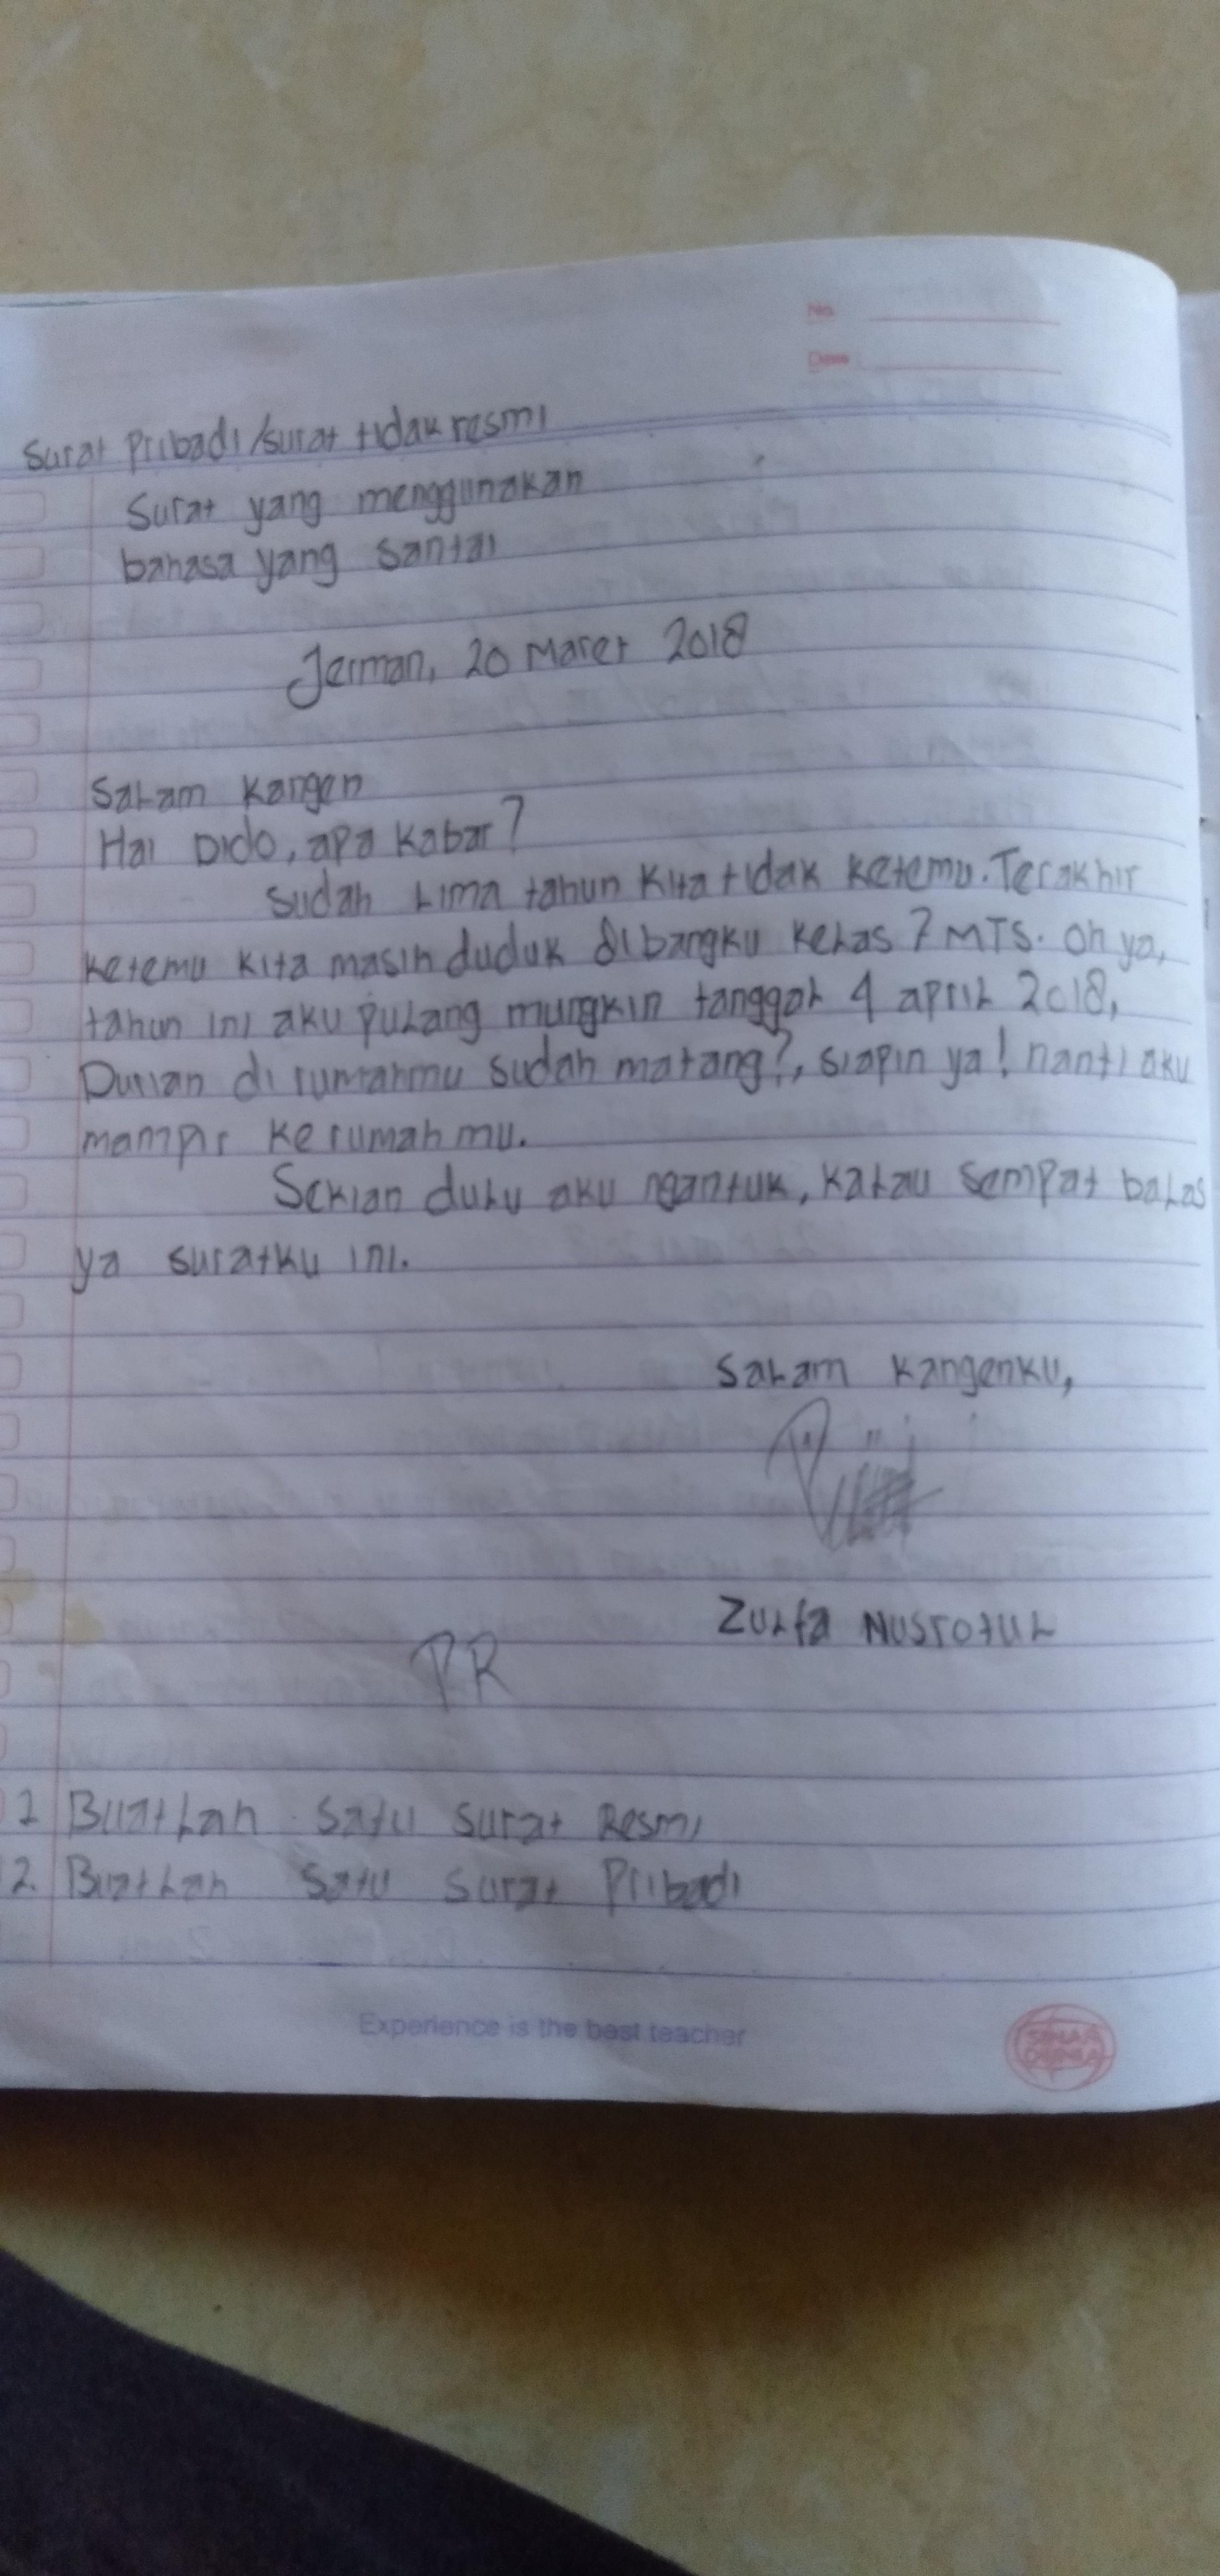 No.
Date
Surat Pribadi/surat tidak resmi
Surat yang menggunakan
bahasa yang santai
Jerman, 20 Maret 2018
Salam Kangen
Hai Dido, apa kabar?
Sudah Lima tahun Kita tidak ketemu. Terakhir
ketemu kita masih duduk dibangku kelas 7 MTS. Oh ya,
tahun ini aku pulang mungkin tanggal 4 april 2018,
Durian di rumahmu sudah matang?, siapin ya! nanti aku
mampir kerumahmu.
Sekian dulu aku ngantuk, kalau sempat balas
ya suratku ini.
Salam kangenku,
Zulfa Nusrotul
PR
1 Buatlah satu surat Resmi
2. Buatlah satu surat Pribadi
Experience is the best teacher
SINAR DUNIA